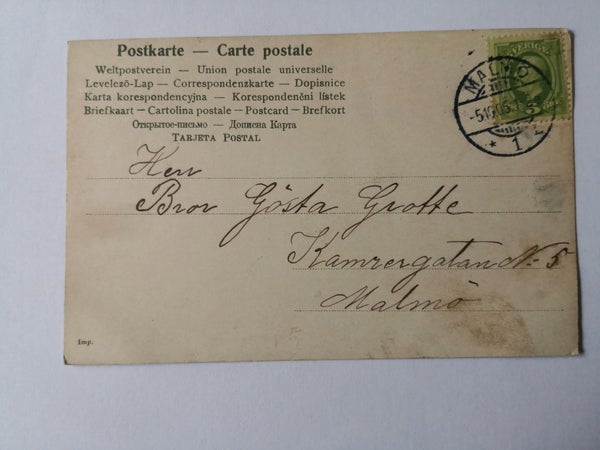 Postkarte — Carte postale
Weltpostverein — Union postale universelle
Levelező-Lap — Correspondenzkarte — Dopisnice
Karta korespondencyjna — Korespondenční lístek
Briefkaart — Cartolina postale — Postcard — Brefkort
Открытое-письмо — Дописна Карта
TARJETA POSTAL
SVERIGE
MALMÖ
1
Herr
Bror Gösta Grotte
Kamrergatan No 5
Malmö
Imp.